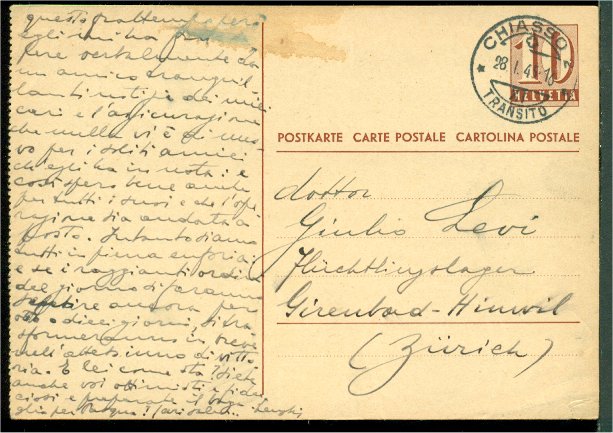 questo frattempo però
egli mi ha fatto
pere verbalmente da
un amico tranquil
lanti notizie dei miei
cari e l'assicurazione
che nulla vi è di nuo
vo per i soliti amici
ch'egli ha in nota: e
così spero bene anche
per tutti i suoi e che l'ope
razione sia andata a
posto. Intanto siamo
tutti in piena euforia
e se i raggianti ordini
del giorno di faranno
sentire ancora per
otto o dieci giorni, si tra
sformeranno in breve
nell' di vitto
ria. E lei come sta? Siete
anche voi ottimisti e fidu
ciosi e preparate il baga
glio per Pasqua?
CHIASSO 2
28.I.45-18
TRANSITO
10
HELVETIA
POSTKARTE CARTE POSTALE CARTOLINA POSTALE
dottor
Giulio Levi
Flüchtlingslager
Girenbad-Hinwil
(Zürich)